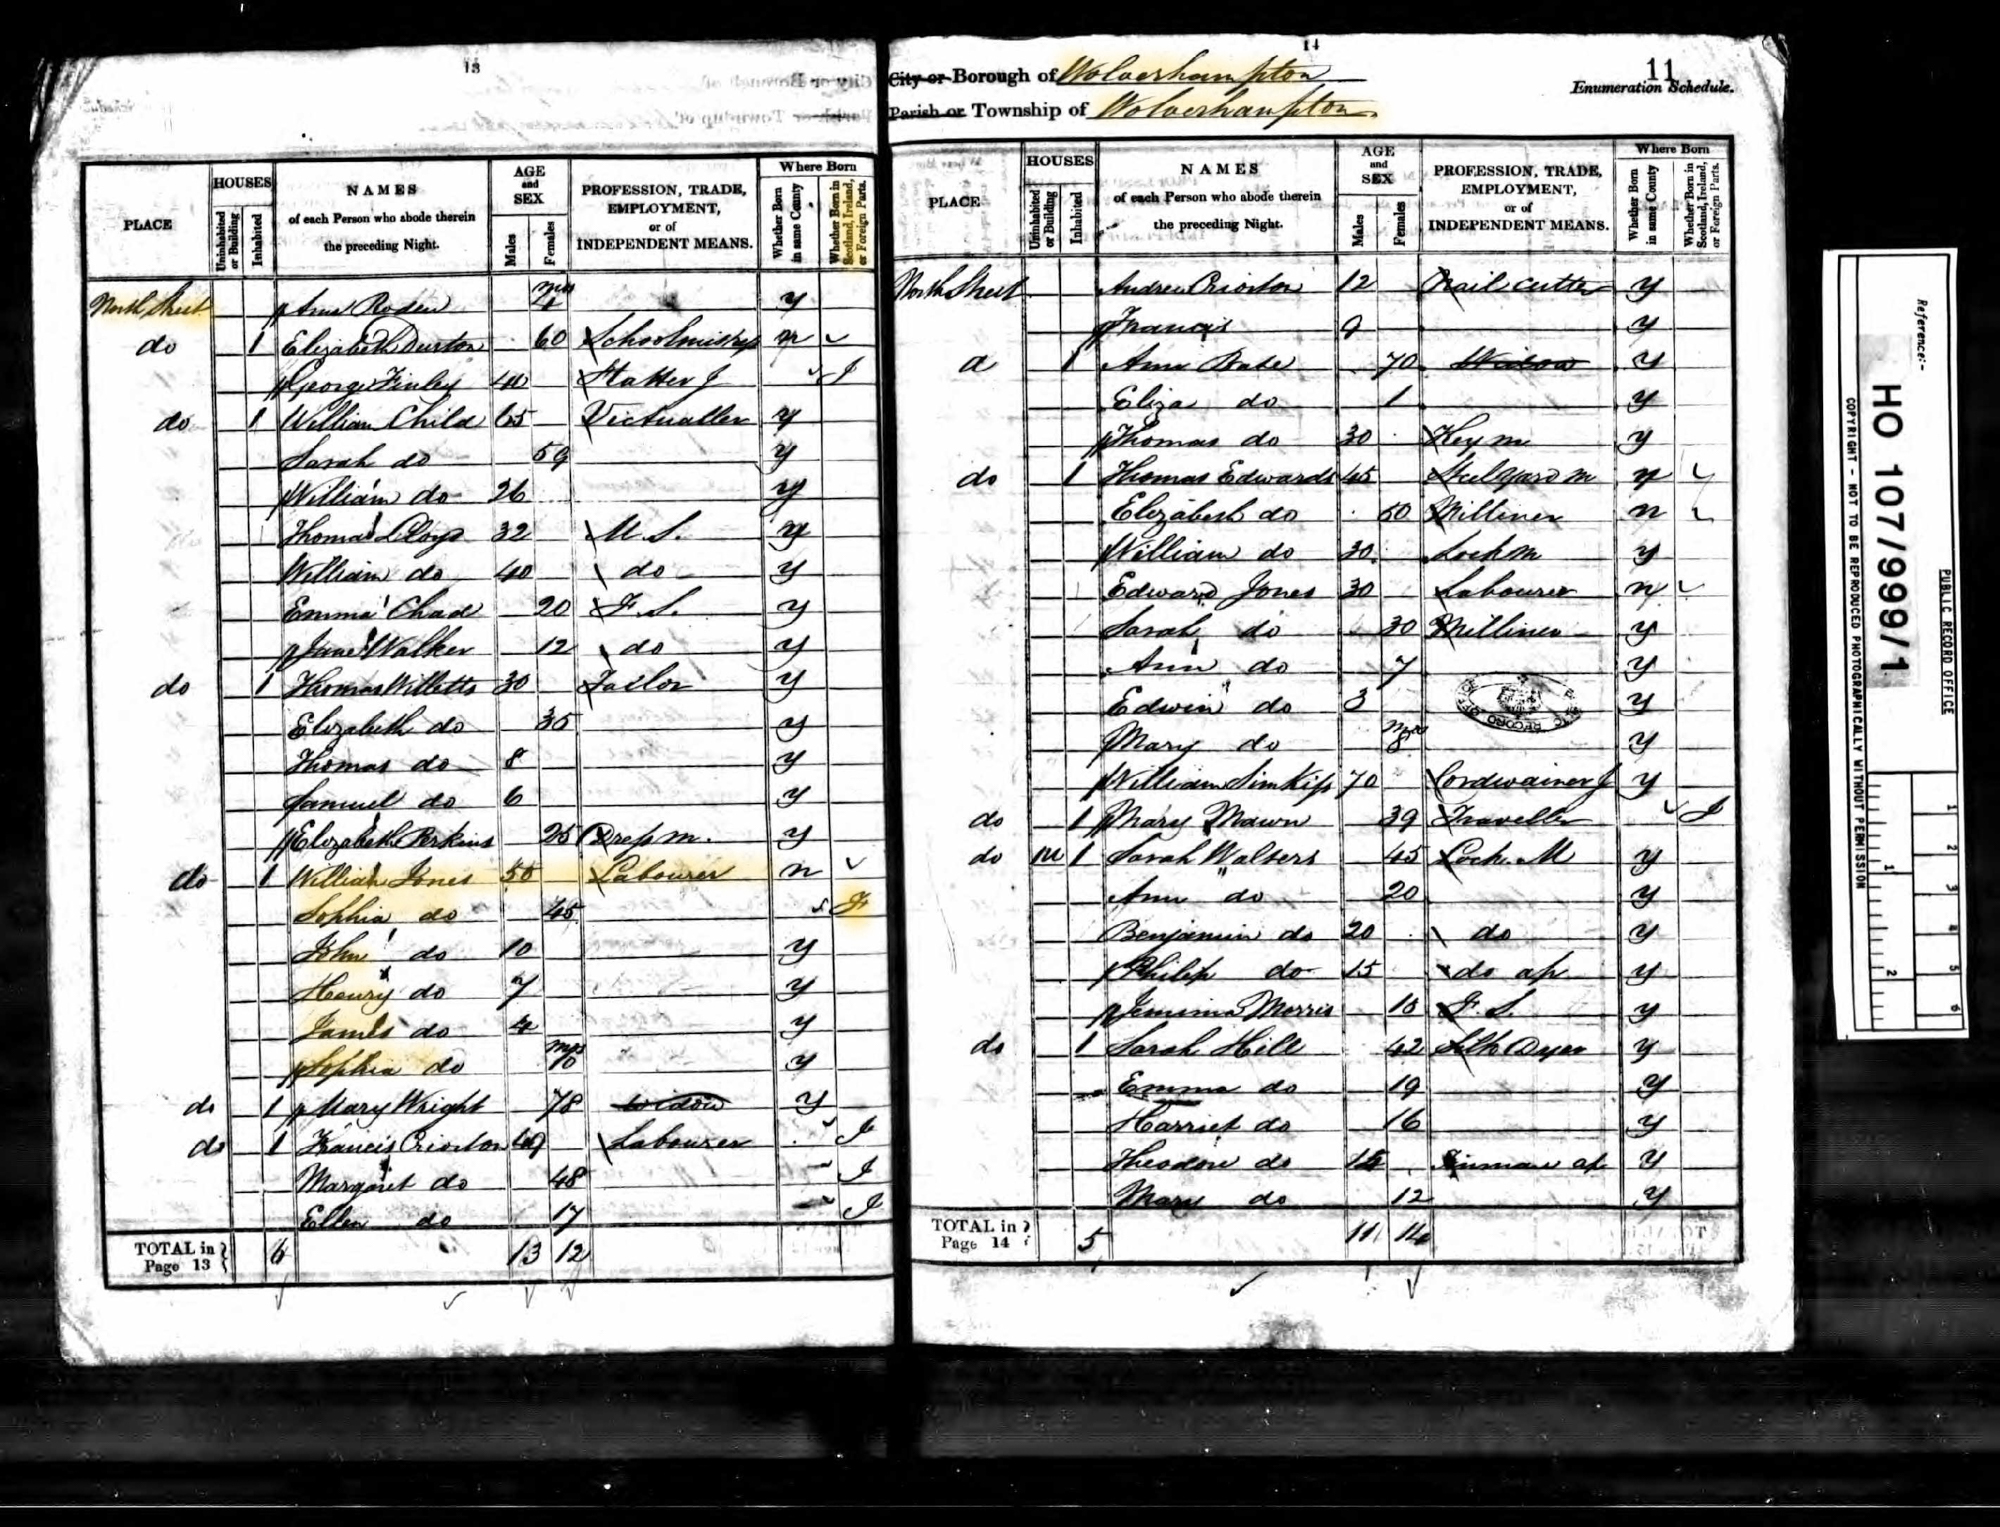 13
PLACE
HOUSES
Uninhabited or Building
Inhabited
NAMES
of each Person who abode therein
the preceding Night.
AGE
and
SEX
Males
Females
PROFESSION, TRADE,
EMPLOYMENT,
or of
INDEPENDENT MEANS.
Where Born
Whether Born in same County
Whether Born in Scotland, Ireland, or Foreign Parts.
North Street Ann Roden mos 4 y
do 1 Elizabeth Durton 60 Schoolmistress n
George Finley 40 Hatter J I
do 1 William Child 65 Victualler y
Sarah do 59 y
William do 26 y
Thomas Lloyd 32 M. S. y
William do 40 do y
Emma Chad 20 F. S. y
Jane Walker 12 do y
do 1 Thomas Willetts 30 Tailor y
Elizabeth do 35 y
Thomas do 8 y
Samuel do 6 y
Elizabeth Perkins 25 Dress m. y
do 1 William Jones 50 Labourer n
Sophia do 45 F
John do 10 y
Henry do 7 y
James do 4 y
Sophia do mos 10 y
do 1 Mary Wright 78 Widow y
do 1 Francis Criorton 49 Labourer I
Margaret do 48 I
Ellen do 17 I
TOTAL in Page 13 6 13 12
14
City or Borough of Wolverhampton
Parish or Township of Wolverhampton
11
Enumeration Schedule.
PLACE
HOUSES
Uninhabited or Building
Inhabited
NAMES
of each Person who abode therein
the preceding Night.
AGE
and
SEX
Males
Females
PROFESSION, TRADE,
EMPLOYMENT,
or of
INDEPENDENT MEANS.
Where Born
Whether Born in same County
Whether Born in Scotland, Ireland, or Foreign Parts.
North Street Andrew Criorton 12 Nail cutter y
Francis 9 y
d 1 Ann Bate 70 Widow y
Eliza do 1 y
Thomas do 30 Key m y
do 1 Thomas Edwards 45 Steelyard m n
Elizabeth do 50 Milliner n
William do 30 Lock m y
Edward Jones 30 Labourer n
Sarah do 30 Milliner y
Ann do 7 y
Edwin do 3 y
Mary do mos 8 y
William Simkiss 70 Cordwainer J y
do 1 Mary Mawn 39 Traveller I
do 1 Sarah Walters 45 Lock. M y
Ann do 20 y
Benjamin do 20 do y
Philip do 15 do ap y
Jemima Morris 10 F. S. y
do 1 Sarah Hill 42 Silk Dyer y
Emma do 19 y
Harriet do 16 y
Theodore do 14 ap y
Mary do 12 y
TOTAL in Page 14 5 11 14
PUBLIC RECORD OFFICE
Reference:-
HO 107/999/1
COPYRIGHT - NOT TO BE REPRODUCED PHOTOGRAPHICALLY WITHOUT PERMISSION
1 2 3 4 5 6
1 2